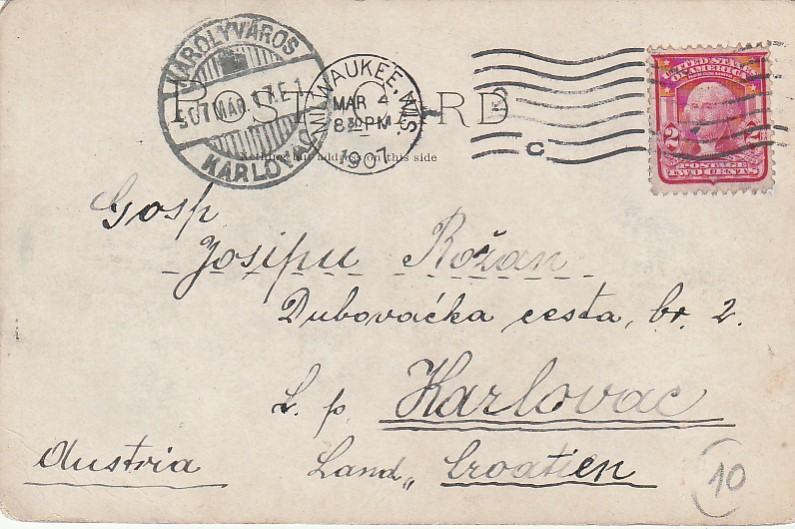 KÁROLYVÁROS
907 MÁR. 17. E. 1
KARLOVAC
MILWAUKEE, WIS.
MAR 4
8 30 PM
1907
C
UNITED STATES
OF AMERICA
2 2
POSTAGE
TWO CENTS
POST CARD
Nothing but address on this side
Gosp
Josipu Rožan
Dubovačka cesta, br. 2.
L. p. Karlovac
Austria Land „ Croatien
10